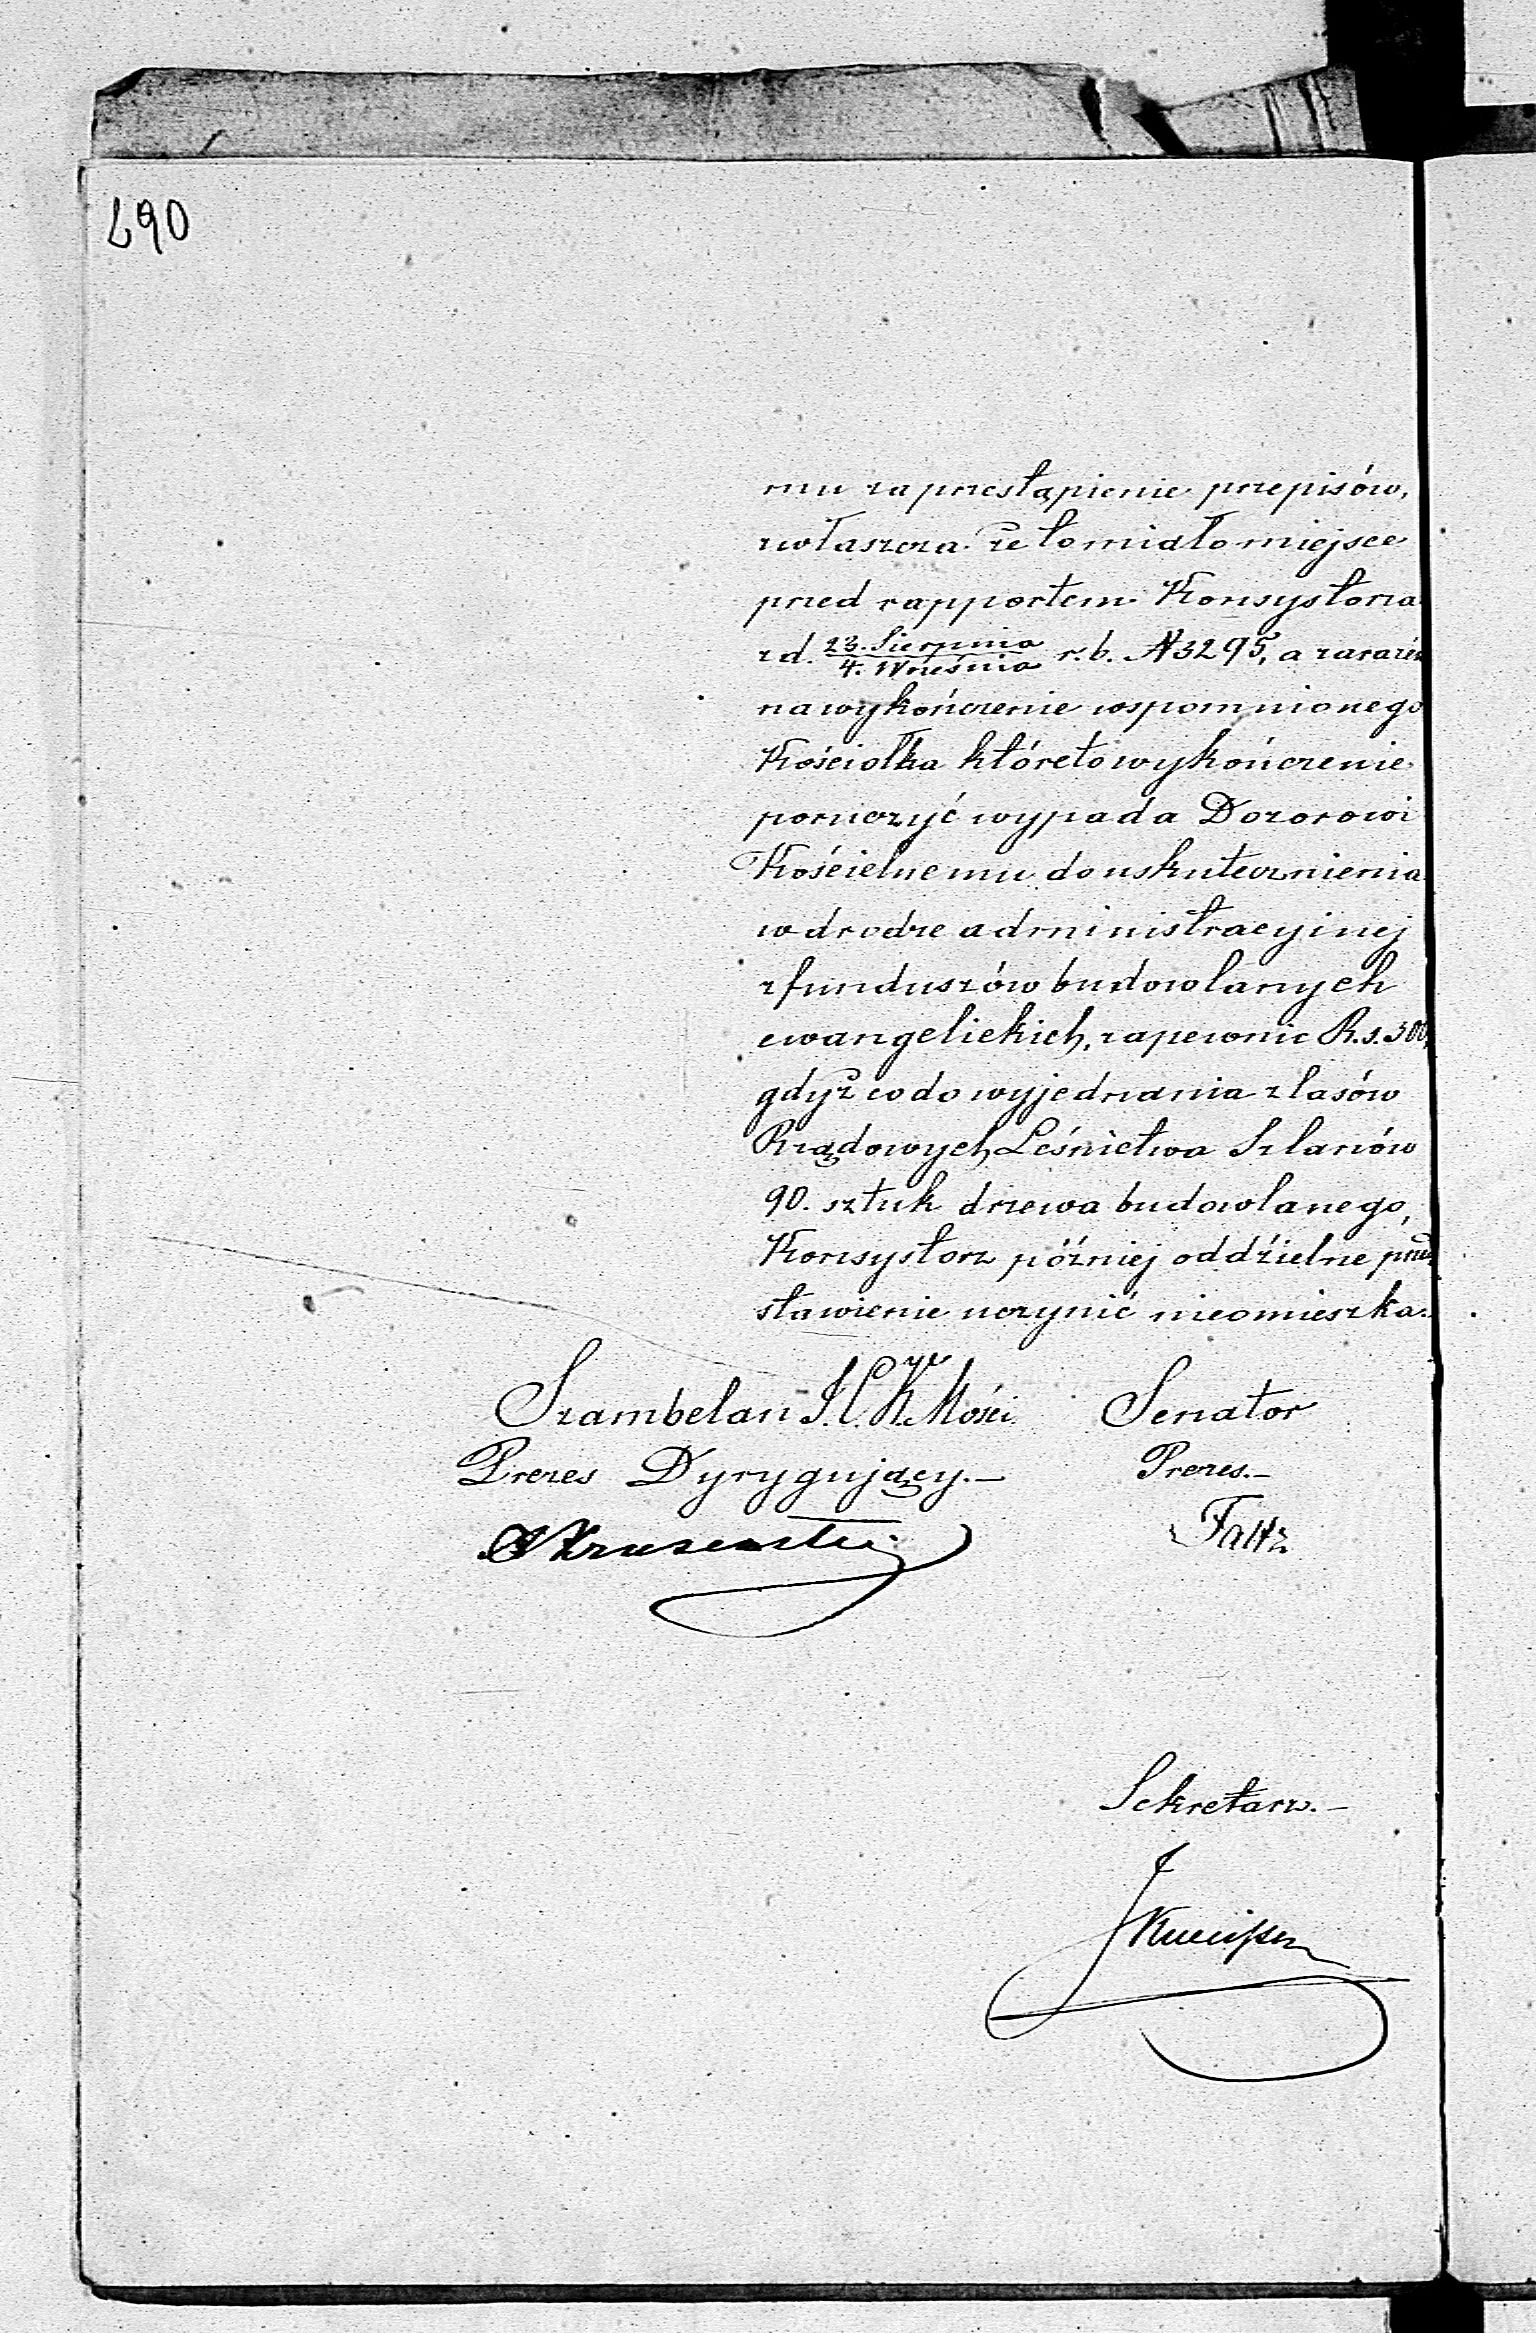 290
mu za przestąpienie przepisów,
zwłaszcza że to miało miejsce
przed rapportem Konsystorza
z d. 23. Sierpnia / 4. Września r. b. N 3295, a zarazem
na wykończenie wspomnionego
Kościołka któreto wykończenie
poruczyć wypada Dozorowi
Kościelnemu do uskutecznienia
w drodze administracyjnej
z funduszów budowlanych
ewangelickich, zapewnić R.s. 300,
gdyż co do wyjednania z lasów
Rządowych Leśnictwa Szlanów
90. sztuk drzewa budowlanego,
Konsystorz później oddzielne przed
stawienie uczynić nieomieszka.
Szambelan J. C. K. Mości Senator
Prezes Dyrygujący.— Prezes.—
Faltz
Sekretarz.—